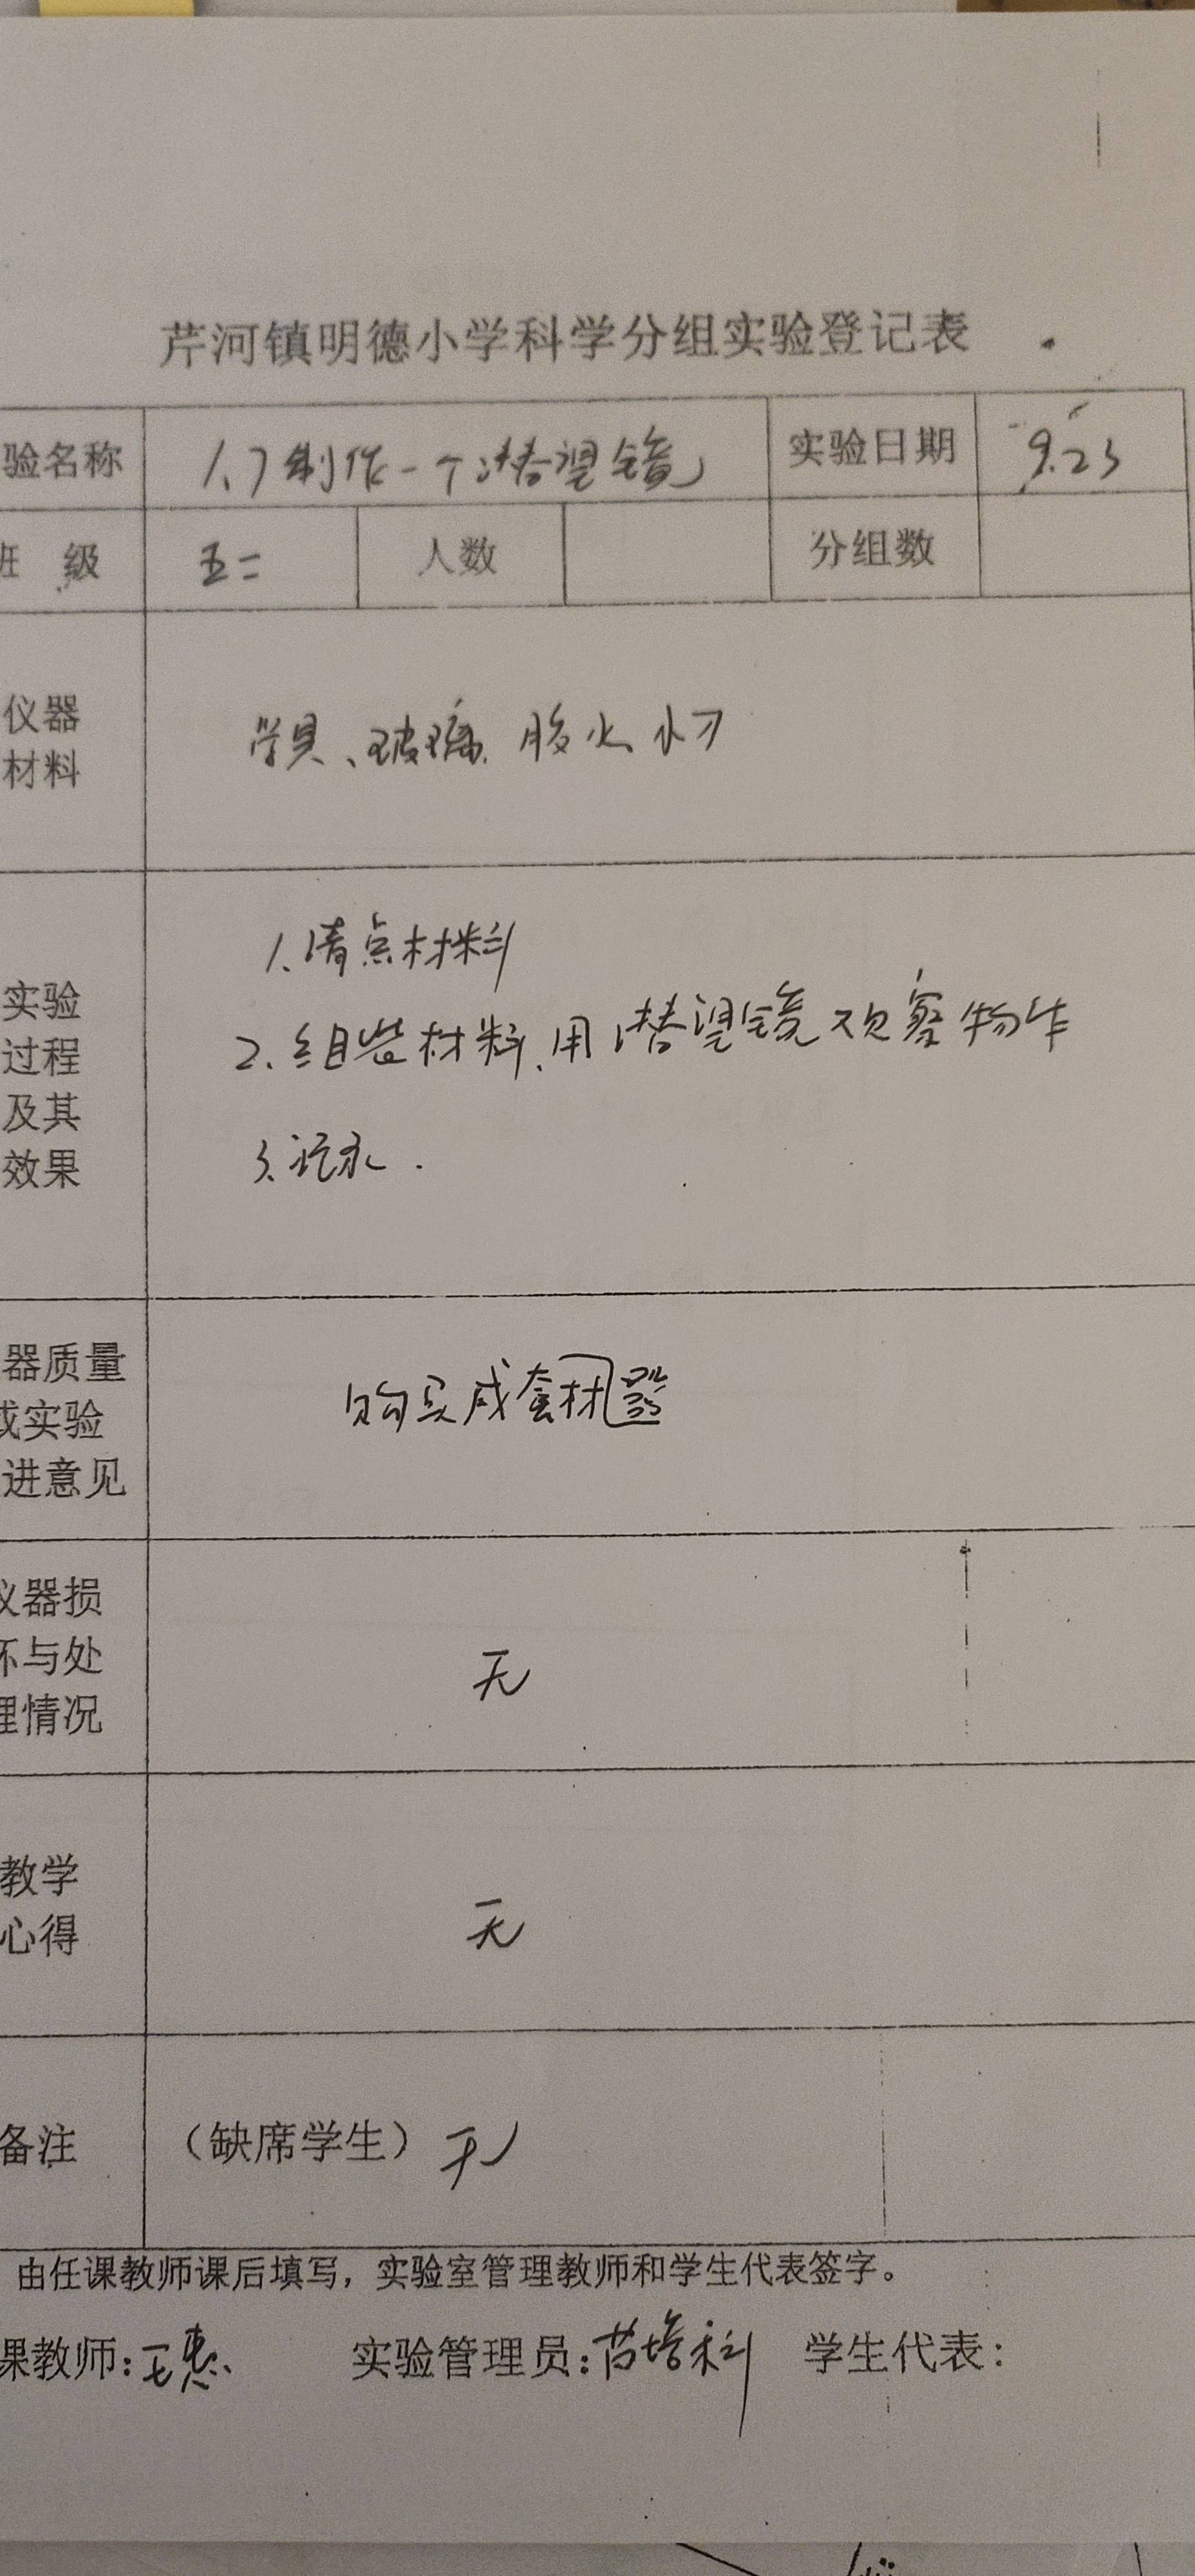 芹河镇明德小学科学分组实验登记表
验名称 1.7制作一个潜望镜 实验日期 9.23
班 级 五二 人数 分组数
仪器
材料
学具、玻璃、胶水 小刀
实验
过程
及其
效果
1.清点材料
2.组装材料、用潜望镜观察物体
3.记录.
器质量
或实验
进意见
购买成套
仪器损
坏与处
理情况
无
教学
心得
无
备注 （缺席学生） 无
由任课教师课后填写，实验室管理教师和学生代表签字。
课教师: 实验管理员: 学生代表: